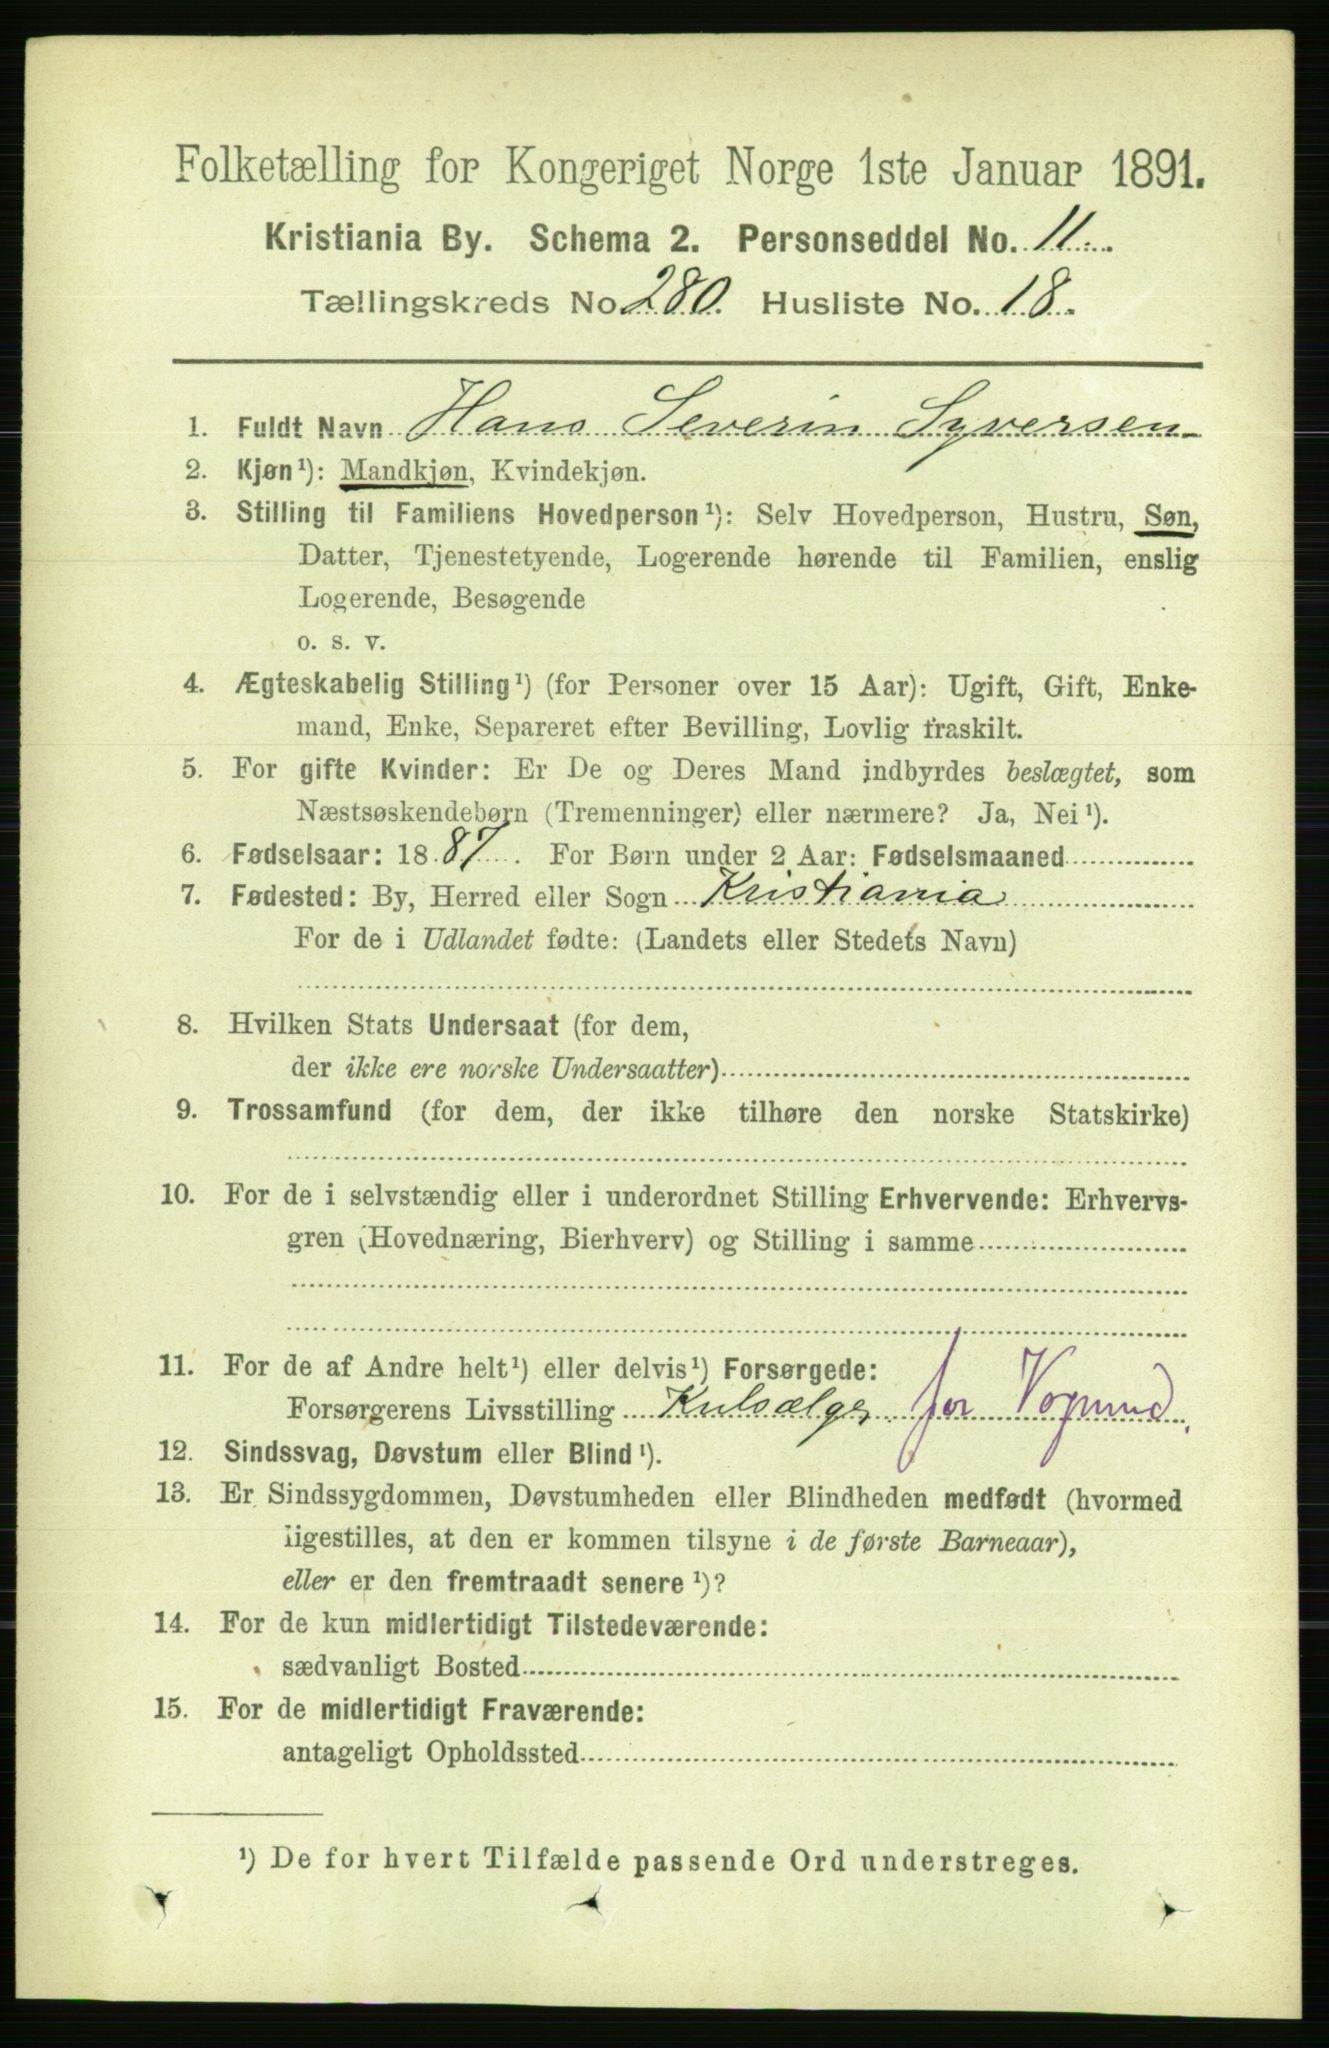 Folketælling for Kongeriget Norge 1ste Januar 1891.
Kristiania By. Schema 2. Personseddel No. 11.
Tællingskreds No 280. Husliste No. 18.
1. Fuldt Navn Hans Severin Syversen
2. Kjøn¹): Mandkjøn, Kvindekjøn.
3. Stilling til Familiens Hovedperson¹): Selv Hovedperson, Hustru, Søn,
Datter, Tjenestetyende, Logerende hørende til Familien, enslig
Logerende, Besøgende
o. s. v.
4. Ægteskabelig Stilling¹) (for Personer over 15 Aar): Ugift, Gift, Enke-
mand, Enke, Separeret efter Bevilling, Lovlig fraskilt.
5. For gifte Kvinder: Er De og Deres Mand indbyrdes beslægtet, som
Næstsøskendebørn (Tremenninger) eller nærmere? Ja, Nei¹).
6. Fødselsaar: 1887. For Børn under 2 Aar: Fødselsmaaned
7. Fødested: By, Herred eller Sogn Kristiania
For de i Udlandet fødte: (Landets eller Stedets Navn)
8. Hvilken Stats Undersaat (for dem,
der ikke ere norske Undersaatter)
9. Trossamfund (for dem, der ikke tilhøre den norske Statskirke)
10. For de i selvstændig eller i underordnet Stilling Erhvervende: Erhvervs-
gren (Hovednæring, Bierhverv) og Stilling i samme
11. For de af Andre helt¹) eller delvis¹) Forsørgede:
Forsørgerens Livsstilling Kulsælger for Vogmnd.
12. Sindssvag, Døvstum eller Blind¹).
13. Er Sindssygdommen, Døvstumheden eller Blindheden medfødt (hvormed
ligestilles, at den er kommen tilsyne i de første Barneaar),
eller er den fremtraadt senere¹)?
14. For de kun midlertidigt Tilstedeværende:
sædvanligt Bosted
15. For de midlertidigt Fraværende:
antageligt Opholdssted
¹) De for hvert Tilfælde passende Ord understreges.